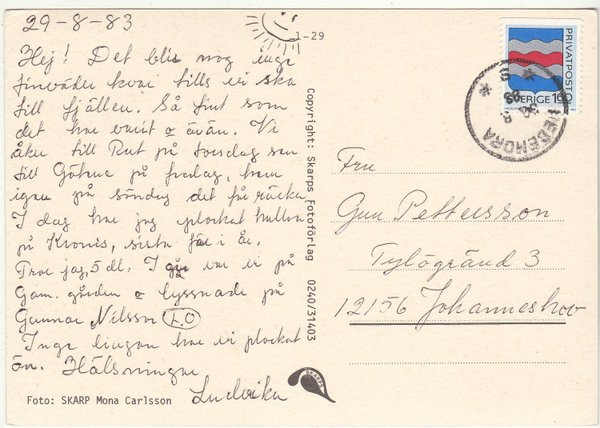 29-8-83
1-29
Hej! Det blir nog inge
finväder kvar tills vi ska
till fjällen. Så fint som
det har varit o även. Vi
åker till Rut på torsdag sen
till Göta på fredag, hem
igen på söndag det få räcka
I dag har jag plockat hallon
på Kronis, sista för i år.
Tror jag, 5 dl. I går var vi på
Gam. gården o lyssnade på
Gunnar Nilsson L.O
Inge lingon har vi plockat
än. Hälsningar
Ludvika
Foto: SKARP Mona Carlsson
SKARPS
Copyright: Skarps Fotoförlag 0240/31403
PRIVATPOSTEN
SVERIGE 160
HEDEMORA
Fru
Gun Pettersson
Tylögränd 3
12156 Johanneshov